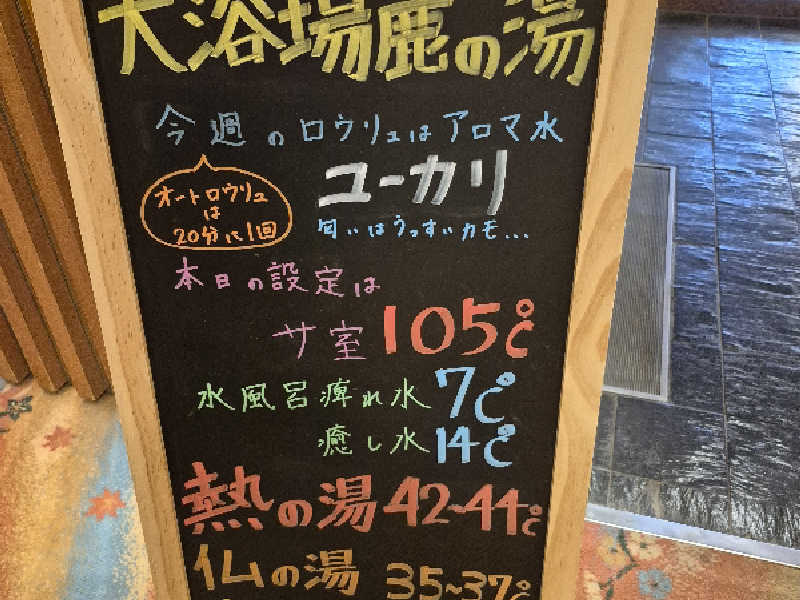 大浴場鹿の湯
今週のロウリュはアロマ水
オートロウリュ
は
20分に1回
ユーカリ
匂いはうっすいカモ...
本日の設定は
サ室 105℃
水風呂痺れ水 7℃
癒し水 14℃
熱の湯 42~44℃
仏の湯 35~37℃